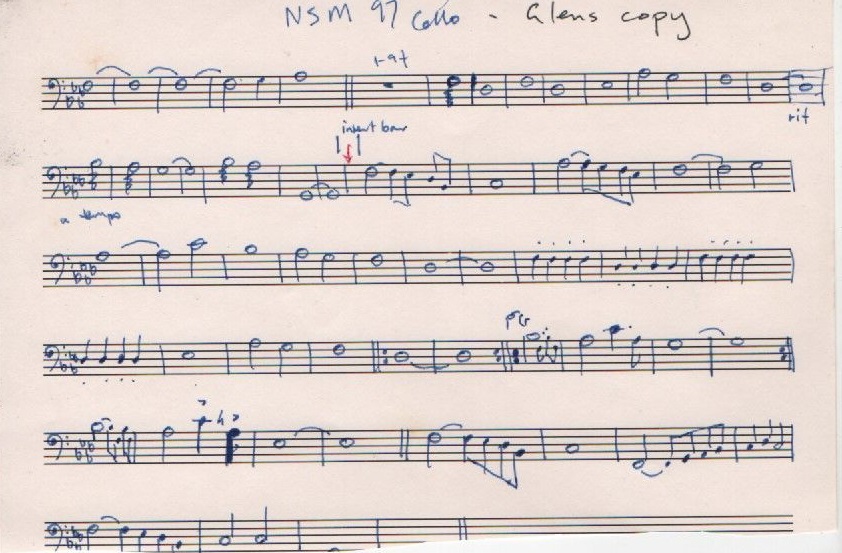 NSM 97 Cello - Glens copy
rit
insert bar
a tempo